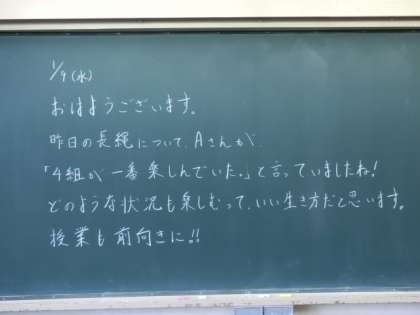 1/9(水)
おはようございます。
昨日の長縄について、Aさんが、
「4組が一番楽しんでいた。」と言っていましたね!
どのような状況も楽しむって、いい生き方だと思います。
授業も前向きに!!